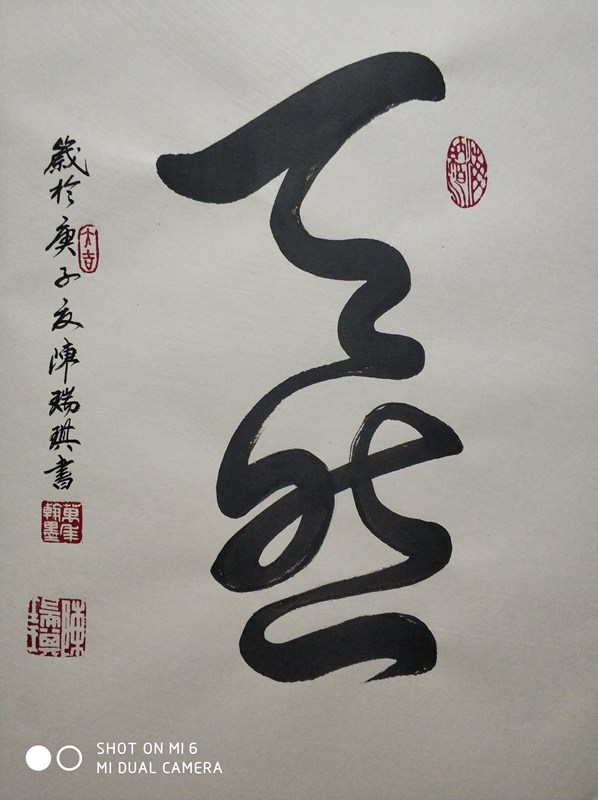 天然
於庚子夏陳瑞琪書
大吉
SHOT ON MI 6
MI DUAL CAMERA